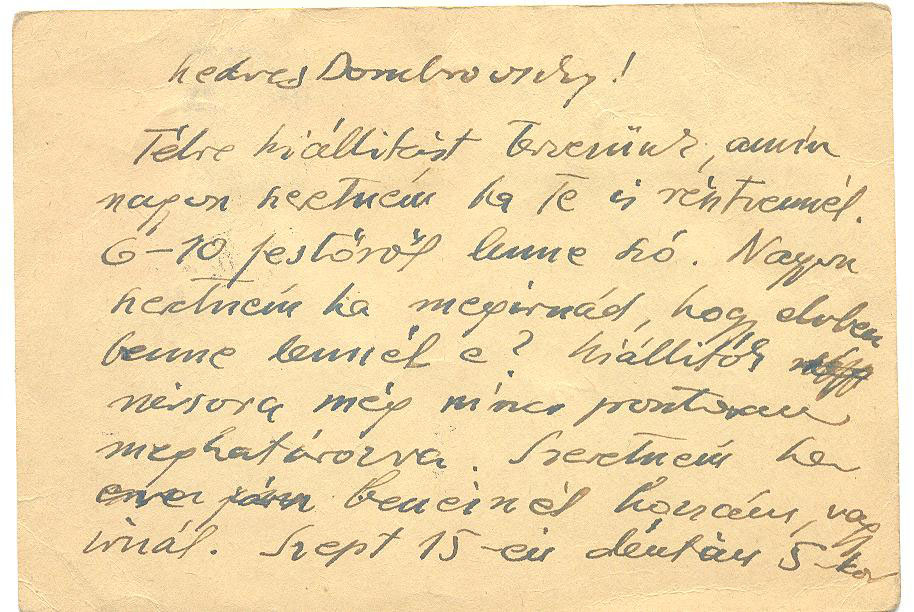 Kedves Dombrovszky!
Télre kiállítást tervezünk, amin
nagyon szeretném ha Te is résztvennél.
6-10 festőről lenne szó. Nagyon
szeretném ha megirnád, hogy elvben
benne lennél e? Kiállítók
névsora még nincs pontosan
meghatározva. Szeretném ha
benéznél hozzám, vagy
irnál. Szept 15-én délután 5-kor